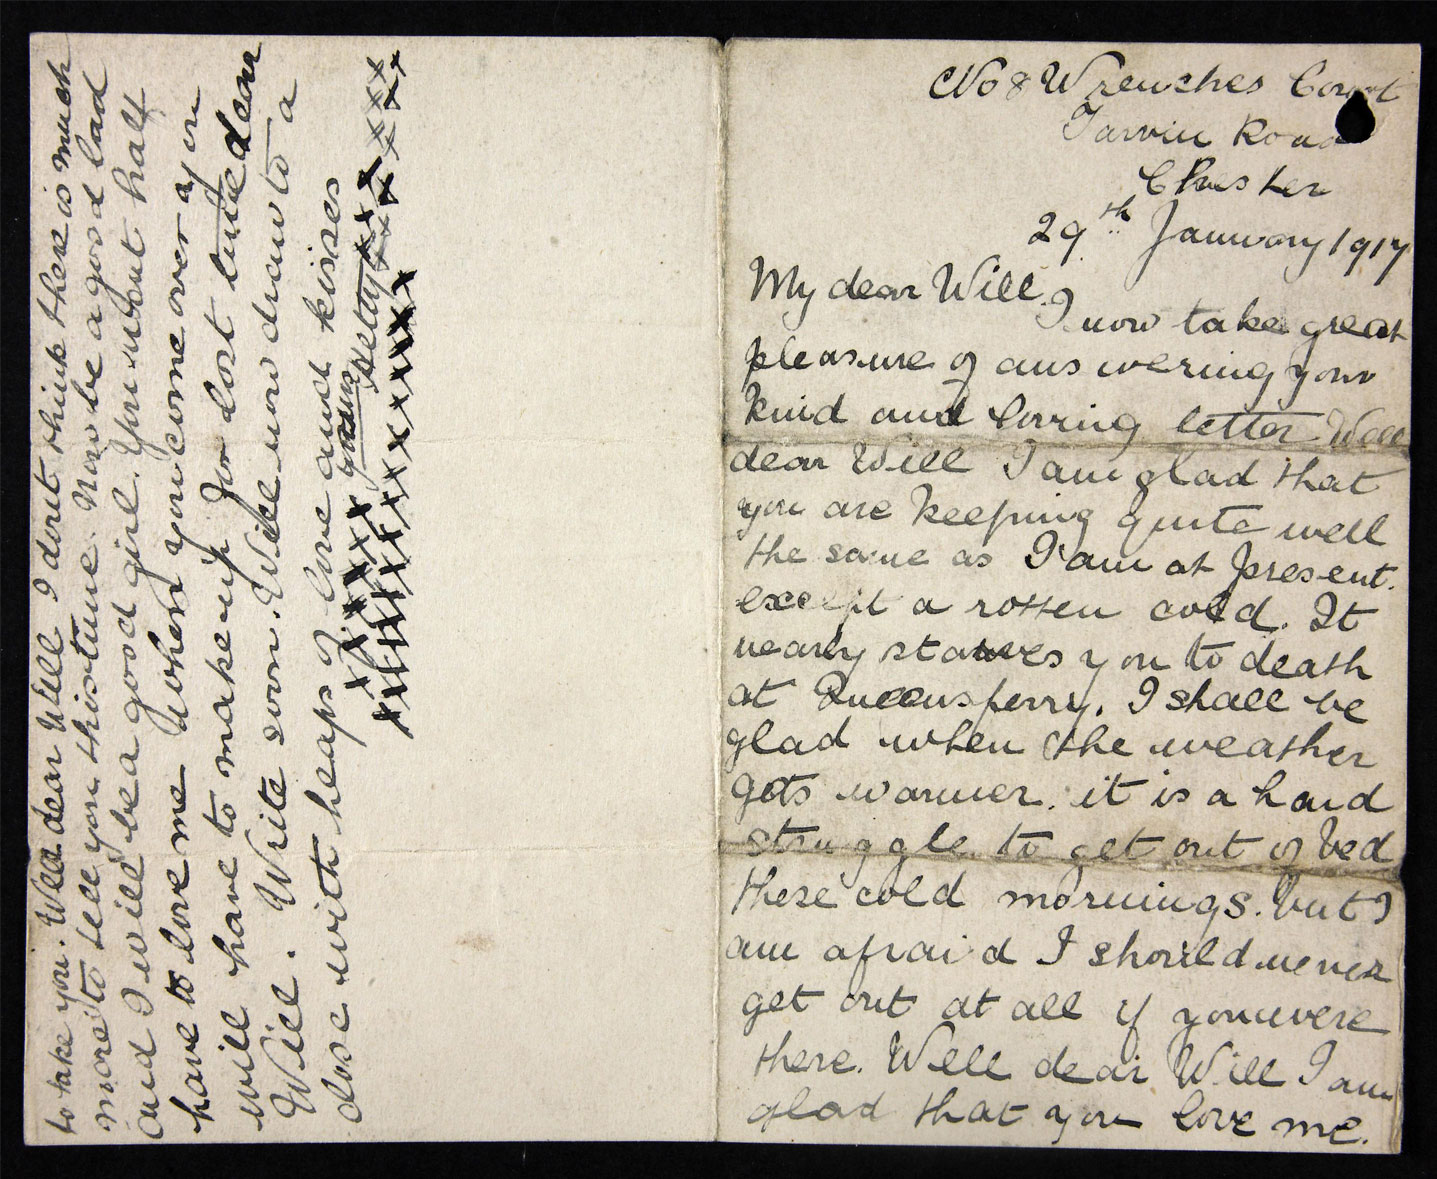 No 8 Wrenches Court
Tarvin Road
Chester
29th January 1917
My dear Will.
I now take great
pleasure of answering your
kind and loving letter Well
dear Will I am glad that
you are keeping quite well
the same as I am at present.
except a rotten cold. It
nearly starves you to death
at Queensferry. I shall be
glad when the weather
gets warmer. it is a hard
struggle to get out of bed
these cold mornings. but I
am afraid I should never
get out at all if you were
there. Well dear Will I am
glad that you love me.
to take you. Well dear Will I dont think there is much
more to tell you this time. Now be a good lad
and I will be a good girl. You wont half
have to love me when you come over you
will have to make up for lost time dear
Will. Write soon. Will now draw to a
close with heaps of love and kisses
xxxxxxx yours Hetty xxxxxxx
xxxxxxxxxxxxxxxxxxxx